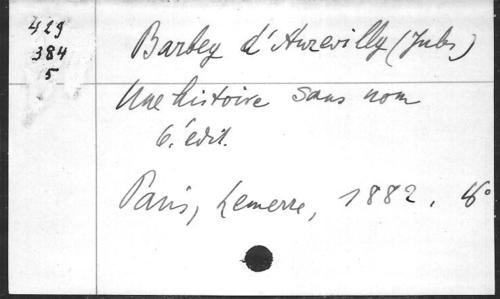 429
384
5
Barbey d'Aurevilly (Jules)
Une histoire sans nom
6.' édit.
Paris, Lemerre, 1882.